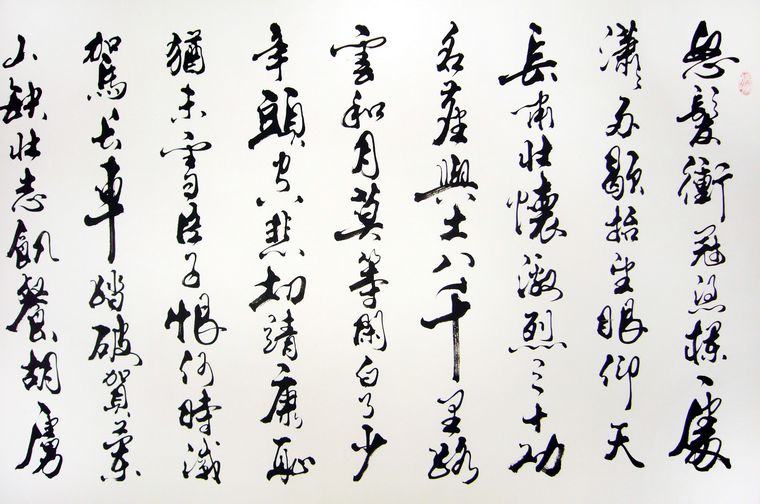 怒髮衝冠憑欄處
瀟々雨歇抬望眼仰天
長嘯壯懷激烈三十功
名塵與土八千里路
雲和月莫等閒白了少
年頭空悲切靖康恥
猶未雪臣子恨何時滅
駕長車踏破賀蘭
山缺壯志飢餐胡虜